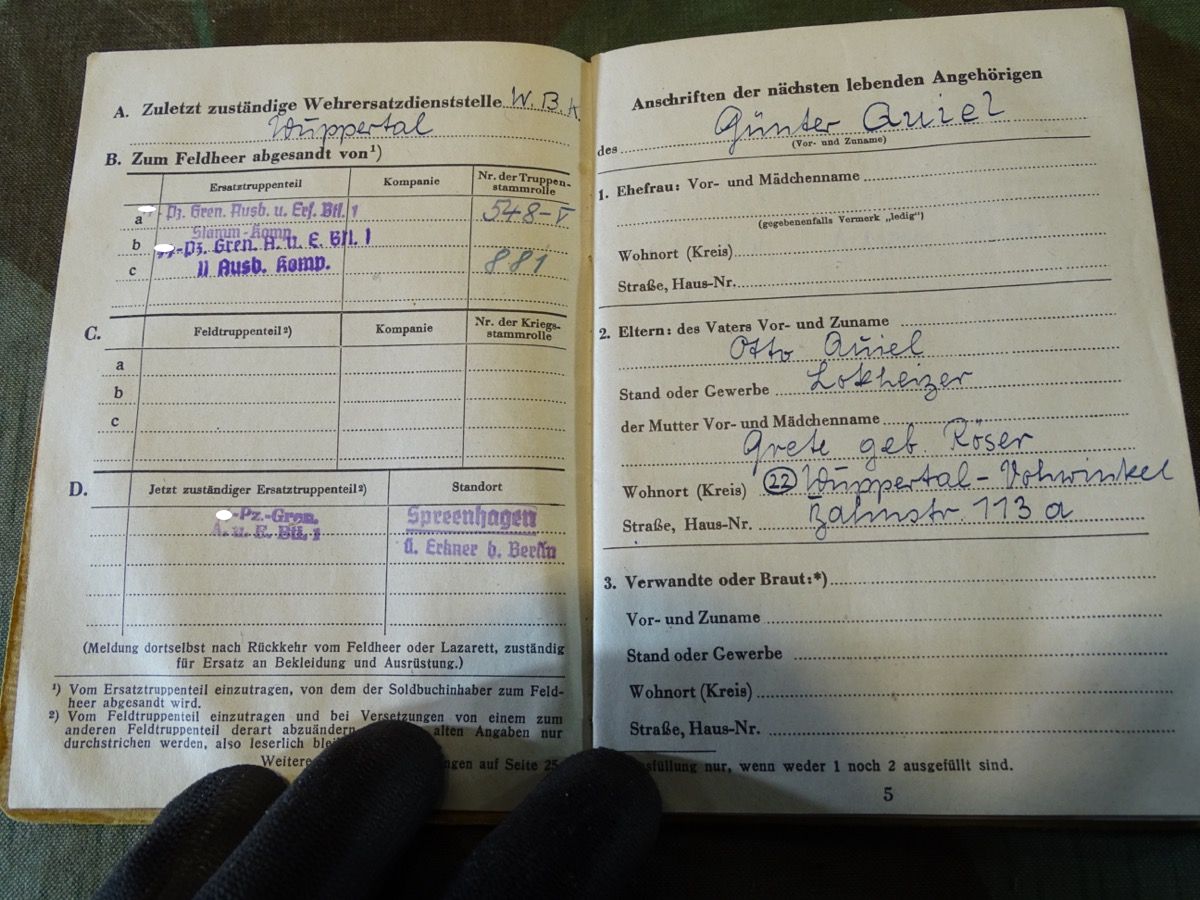 A. Zuletzt zuständige Wehrersatzdienststelle W. B. K
Wuppertal
B. Zum Feldheer abgesandt von¹)
Ersatztruppenteil Kompanie Nr. der Truppen-
stammrolle
a Pz. Gren. Ausb. u. Ers. Btl. 1 548-V
Stamm-Komp.
b -Pz. Gren. A. u. E. Btl. 1
c 11 Ausb. Komp. 881
C. Feldtruppenteil²) Kompanie Nr. der Kriegs-
stammrolle
a
b
c
D. Jetzt zuständiger Ersatztruppenteil²) Standort
-Pz.-Gren. Spreenhagen
A. u. E. Btl. 1 ü. Erkner b. Berlin
(Meldung dortselbst nach Rückkehr vom Feldheer oder Lazarett, zuständig
für Ersatz an Bekleidung und Ausrüstung.)
¹) Vom Ersatztruppenteil einzutragen, von dem der Soldbuchinhaber zum Feld-
heer abgesandt wird.
²) Vom Feldtruppenteil einzutragen und bei Versetzungen von einem zum
anderen Feldtruppenteil derart abzuändern alten Angaben nur
durchstrichen werden, also leserlich
Weitere auf Seite 25
Anschriften der nächsten lebenden Angehörigen
des Günter Quiel
(Vor- und Zuname)
1. Ehefrau: Vor- und Mädchenname
(gegebenenfalls Vermerk „ledig")
Wohnort (Kreis)
Straße, Haus-Nr.
2. Eltern: des Vaters Vor- und Zuname
Otto Quiel
Stand oder Gewerbe Lokheizer
der Mutter Vor- und Mädchenname
Grete geb. Röser
Wohnort (Kreis) 22 Wuppertal-Vohwinkel
Straße, Haus-Nr. Bahnstr 113 a
3. Verwandte oder Braut:*)
Vor- und Zuname
Stand oder Gewerbe
Wohnort (Kreis)
Straße, Haus-Nr.
nur, wenn weder 1 noch 2 ausgefüllt sind.
5